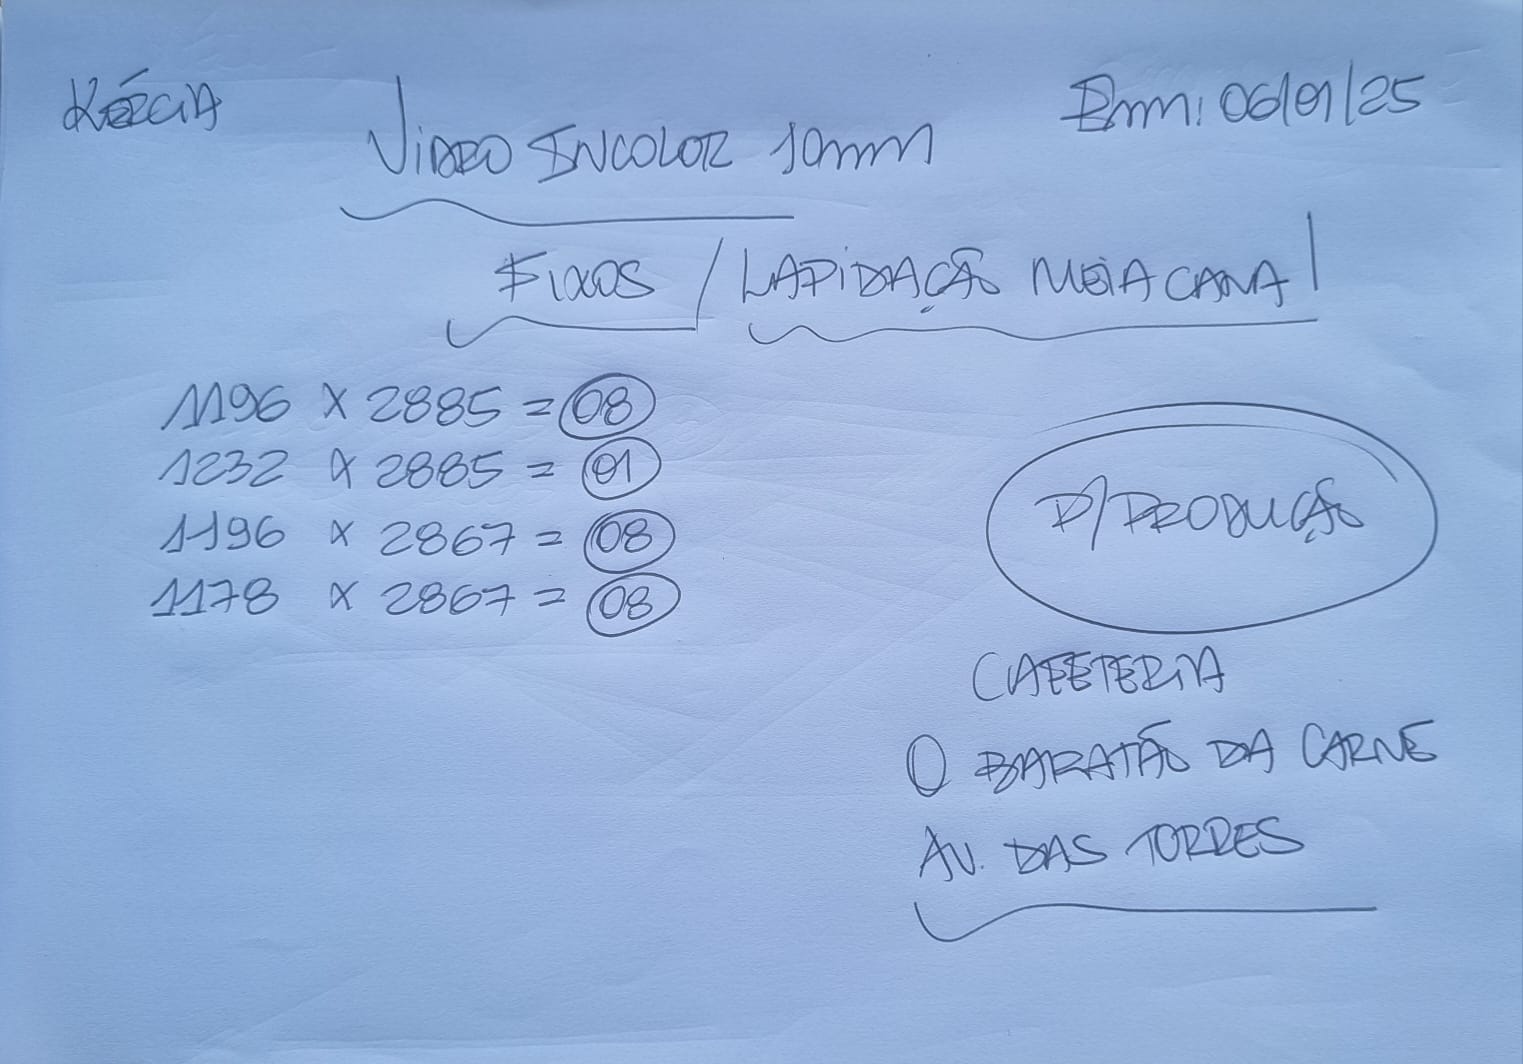 KÉZCIA
Em: 06/01/25
VIDRO INCOLOR 10mm
FIXOS / LAPIDAÇÃO MEIA CANA
1196 X 2885 = 08
1232 X 2885 = 01
1196 X 2867 = 08
1178 X 2867 = 08
P/PRODUÇÃO
CAFETERIA
O BARATÃO DA CARNE
AV. DAS TORRES